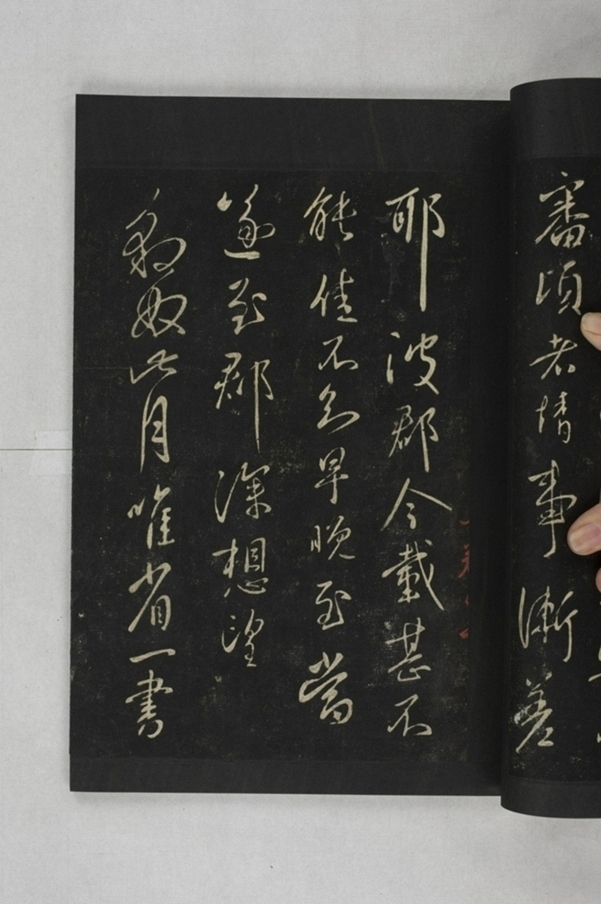 審頃者情事漸差
耶彼郡今載甚不
能佳不知早晚至當
遂至郡深想望
奴此月唯省一書